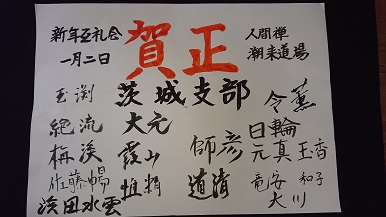 新年互礼会
一月二日
賀正
人間禅
潮来道場
茨城支部
玉渕
絶流
梅渓
佐藤暢
浜田水雲
大元
霞山
惟精
師彦
道清
令薫
日輪
元真
玉香
竜安
和子
大川